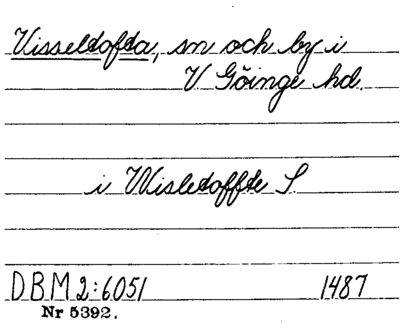 Visseltofta, sn och by i
V Göinge hd.
i Wisletoffte S
DBM 2:6051 1487
Nr 5392.